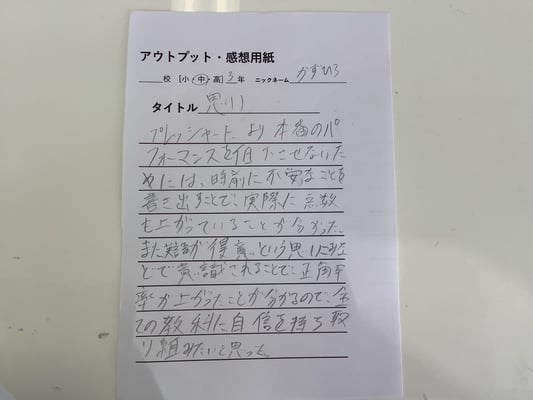 アウトプット・感想用紙
校 [小・中・高] 3年 ニックネーム かずひろ
タイトル 思い
プレッシャーにより本番のパ
フォーマンスを低下させないた
めには、時前に不安なことを
書き出すことで、実際に点数
も上がっていることが分かった。
また英語が得意という思い
どで意識されることで、正解
率が上がったことが分かるので、全
ての教科に自信を持ち取
り組みたいと思った。